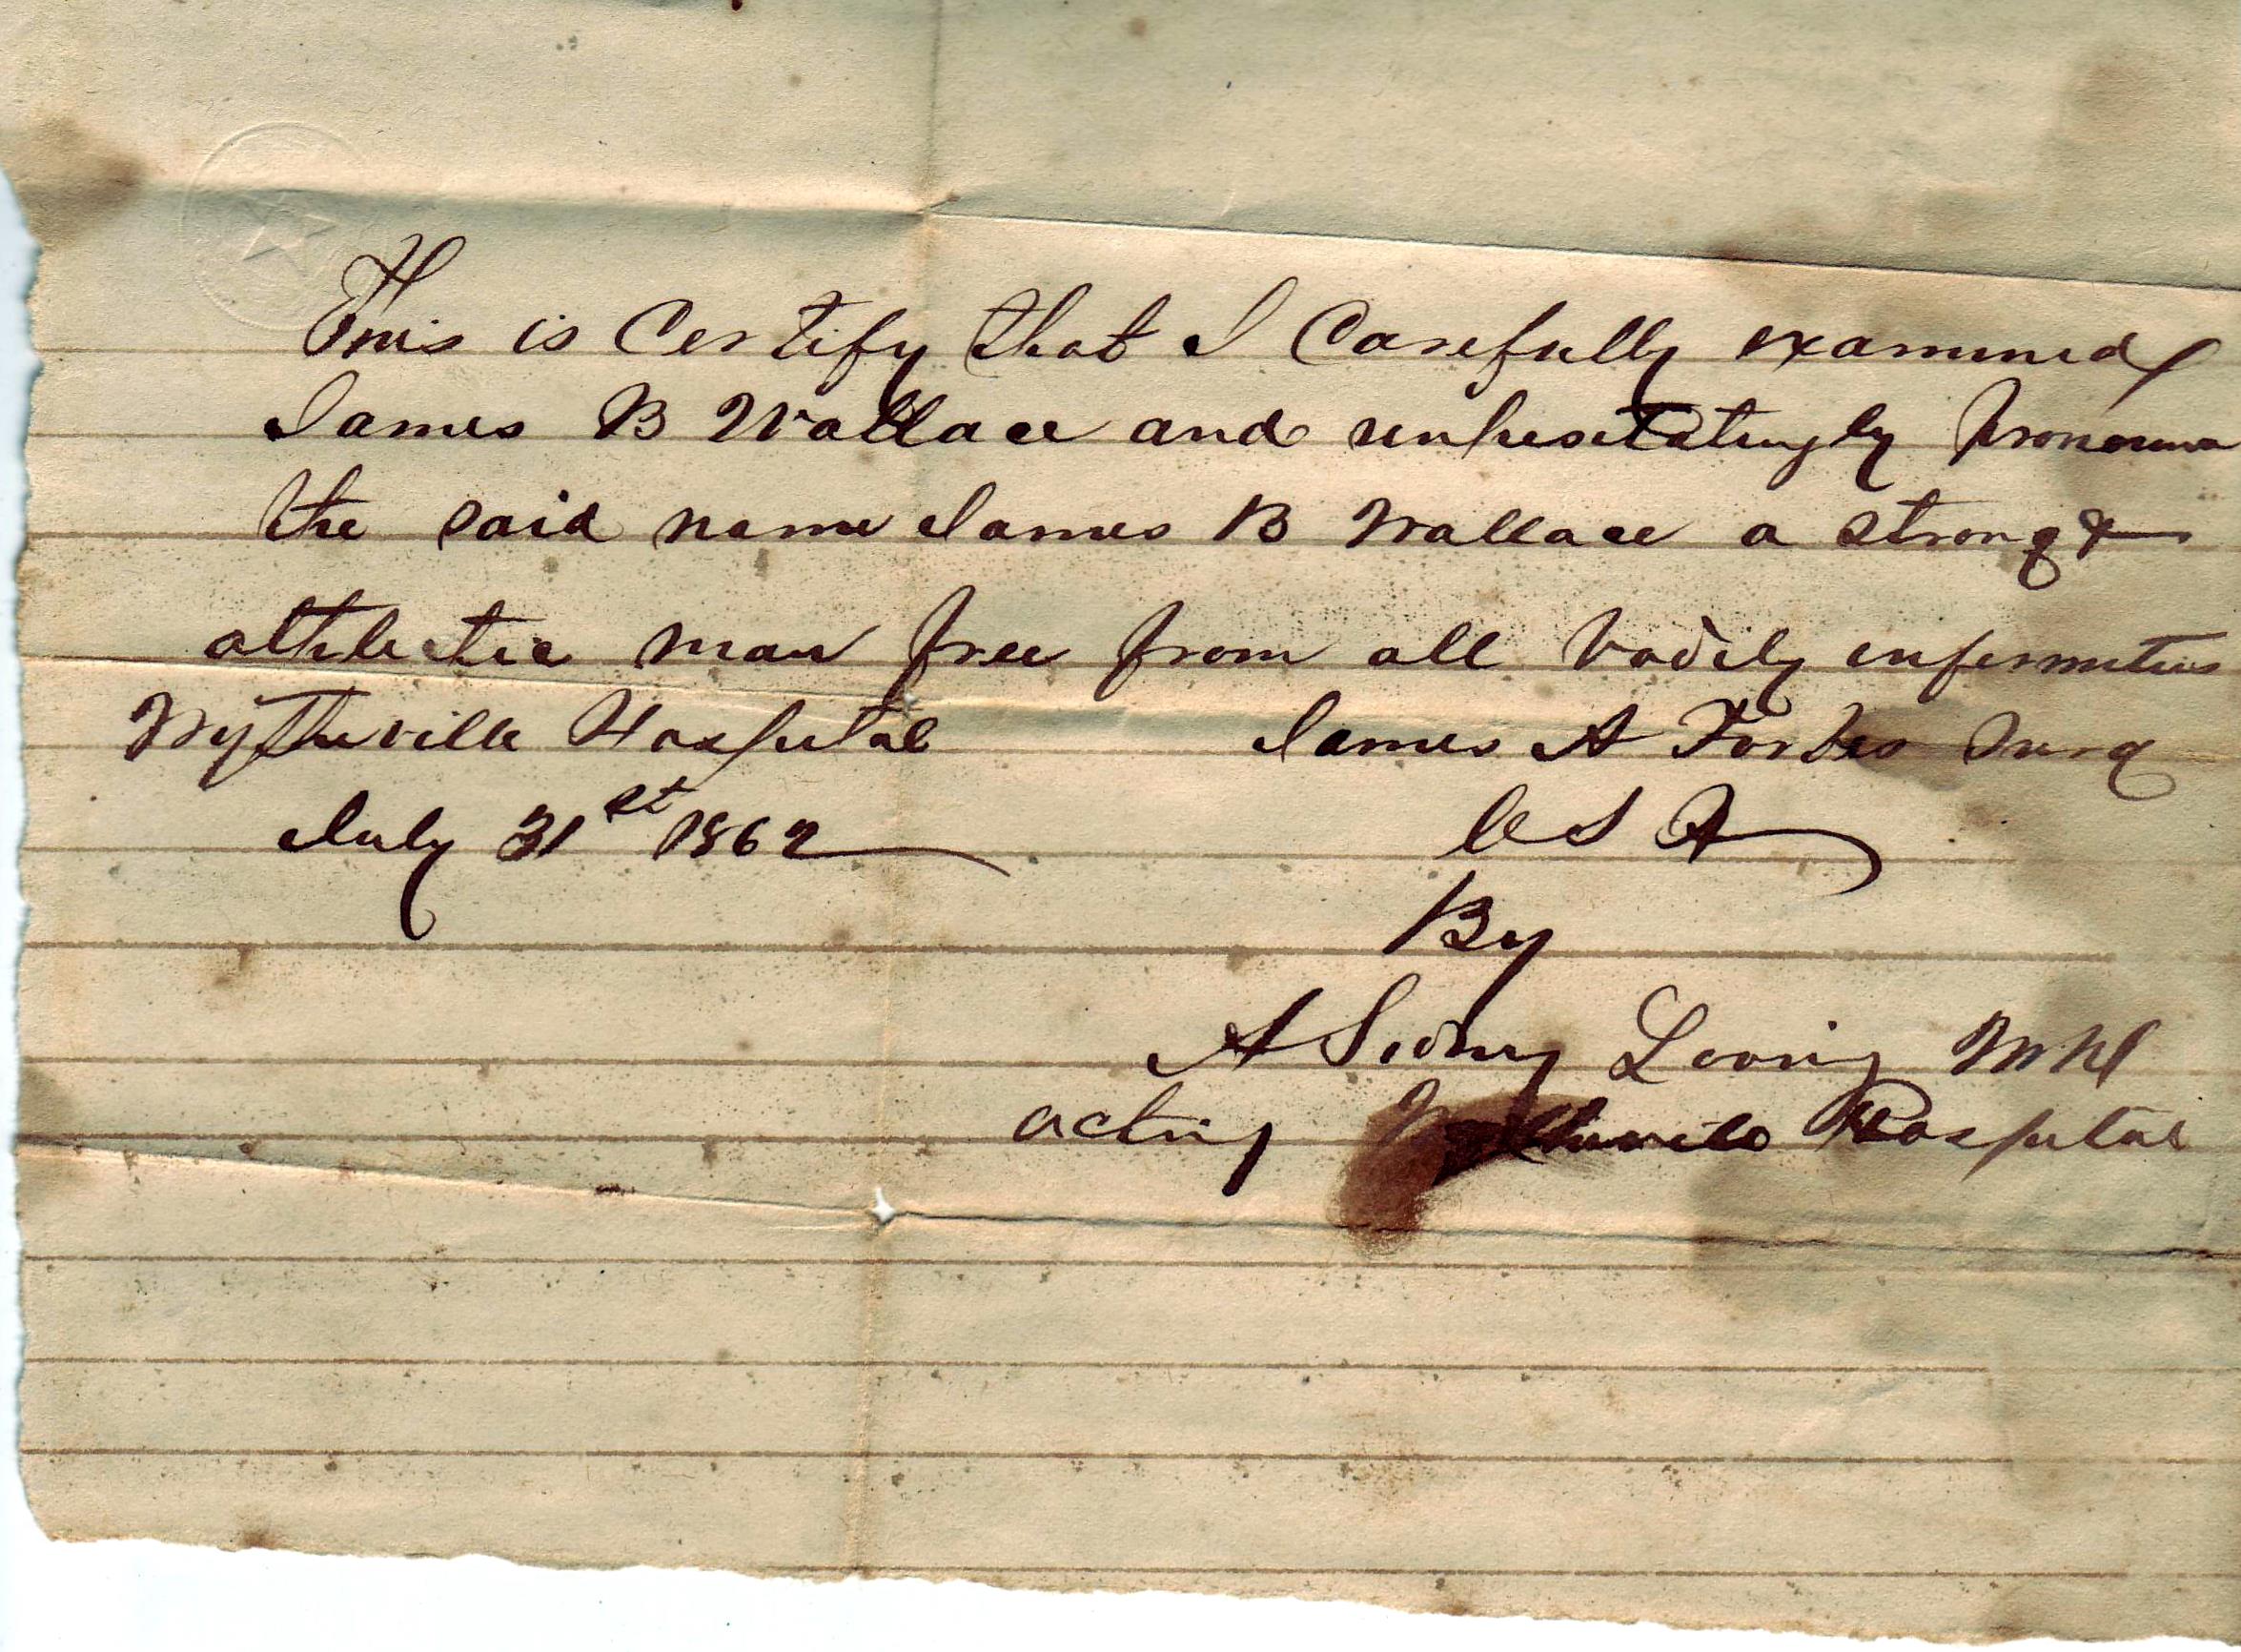 This is Certify that I Carefully examined
James B Wallace and unhesitatingly pronounce
the said name James B Wallace a strong &
athletic man free from all bodily infermities
Wytheville Hospital James A Forbes Surg
July 31st 1862 C S A
By
A Sidney Loving
acting Wytheville Hospital